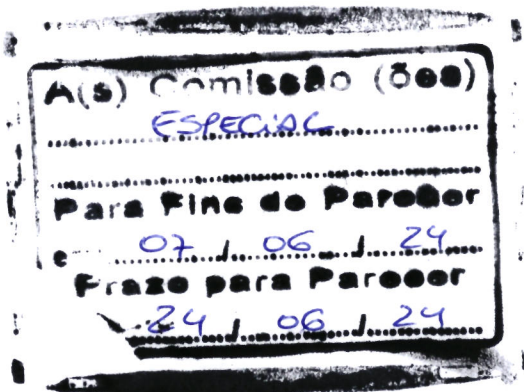 A(s) Comissão (ões)
ESPECIAL
Para Fins de Parecer
07 / 06 / 24
Prazo para Parecer
24 / 06 / 24